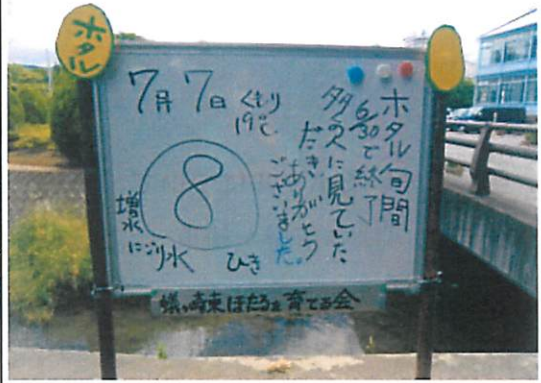 ホタル
7月7日
くもり
19℃
8
増水
にごり水
ひき
ホタル旬間
6/30で終了
多の人に見ていた
だき
ありがとう
ございました。
蟻ヶ崎東ほたるを育てる会